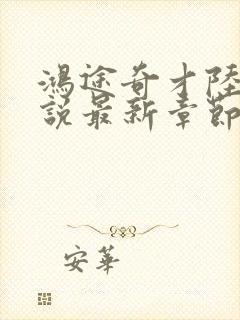 鴻途奇才陸
說最新章節
安華